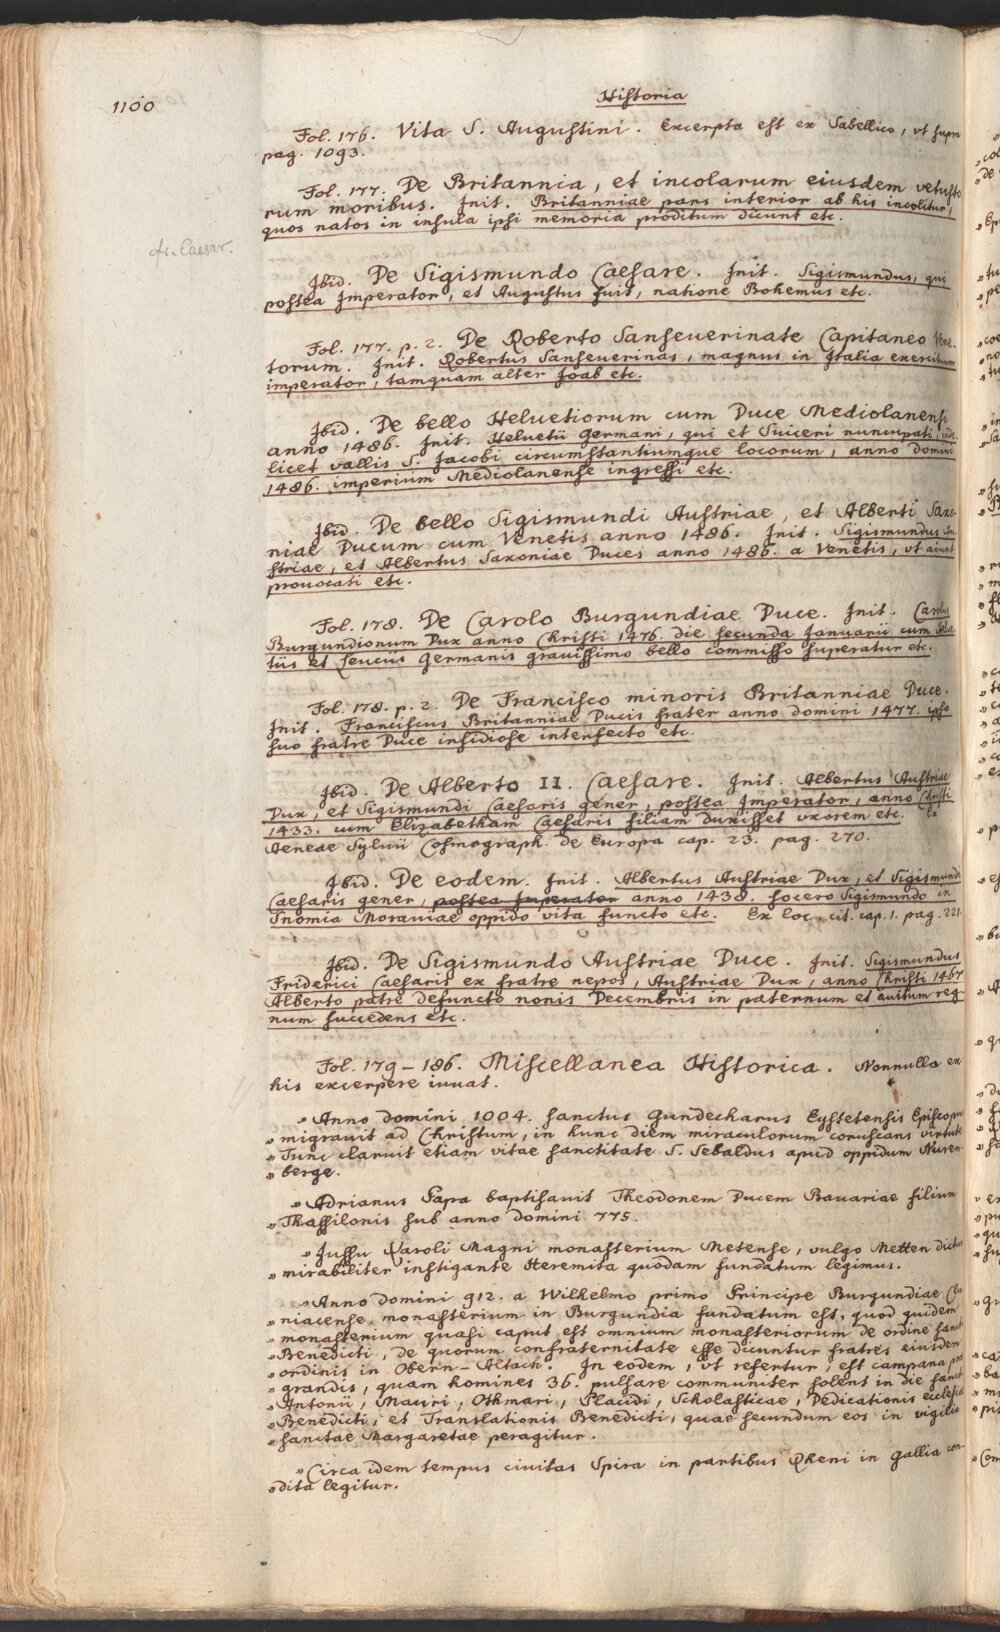 1100
Historia
Fol. 176. Vita S. Augustini. Excerpta est ex Sabellico, vt supra
pag. 1093.
Fol. 177. De Britannia, et incolarum eiusdem vetusto
rum moribus. Init. Britanniae pars interior ab his incolitur,
quos natos in insula ipsi memoria proditum dicunt etc.
fr. Caesar.
Ibid. De Sigismundo Caesare. Init. Sigismundus, qui
postea Imperator, et Augustus fuit, natione Bohemus etc.
Fol. 177. p. 2. De Roberto Sanseuerinate Capitaneo Vene-
torum. Init. Robertus Sanseuerinas, magnus in Italia exercituum
imperator, tamquam alter Joab etc.
Ibid. De bello Heluetiorum cum Duce Mediolanensi
anno 1486. Init. Heluetii Germani, qui et Suiceri nuncupati, vide-
licet vallis S. Jacobi circumstantiumque locorum, anno domini
1486. imperium Mediolanense ingressi etc.
Ibid. De bello Sigismundi Austriae, et Alberti Saxo-
niae Ducum cum Venetis anno 1486. Init. Sigismundus Au-
striae, et Albertus Saxoniae Duces anno 1486. a Venetis, vt aiunt
prouocati etc.
Fol. 178. De Carolo Burgundiae Duce. Init. Carolus
Burgundionum Dux anno Christi 1476. die secunda Januarii cum Helue-
tiis et Seucus Germanis grauissimo bello commisso superatur etc.
Fol. 178. p. 2. De Francisco minoris Britanniae Duce.
Init. Franciscus Britanniae Ducis frater anno domini 1477. ipso
suo fratre Duce insidiose interfecto etc.
Ibid. De Alberto II. Caesare. Init. Albertus Austriae
Dux, et Sigismundi Caesaris gener, postea Imperator, anno Christi
1433. cum Elizabetham Caesaris filiam duxisset vxorem etc. Ex
Aeneae Syluii Cosmograph. de Europa cap. 23. pag. 270.
Ibid. De eodem. Init. Albertus Austriae Dux, et Sigismundi
Caesaris gener, postea Imperator anno 1438. socero Sigismundo in
Snomia Morauiae oppido vita functo etc. Ex loc. cit. cap. 1. pag. 221.
Ibid. De Sigismundo Austriae Duce. Init. Sigismundus
Friderici Caesaris ex fratre nepos, Austriae Dux, anno Christi 1467
Alberto patre defuncto nonis Decembris in paternum et auitum reg-
num succedens etc.
Fol. 179-186. Miscellanea Historica. Nonnulla ex
his excerpere iuuat.
„Anno domini 1004. sanctus Gundecharus Eystetensis Episcopus
„migrauit ad Christum, in hunc diem miraculorum coruscans virtute
„Tunc claruit etiam vitae sanctitate S. Sebaldus apud oppidum Nuren-
„berge.
„Adrianus Papa baptisauit Theodonem Ducem Bauariae filium
„Thassilonis sub anno domini 775.
„Jussu Caroli Magni monasterium Metense, vulgo Metten dictum
„mirabiliter instigante Heremita quodam fundatum legimus.
„Anno domini 912. a Wilhelmo primo Principe Burgundiae Clu-
„niacense monasterium in Burgundia fundatum est, quod quidem
„monasterium quasi caput est omnium monasteriorum de ordine sancti
„Benedicti, de quorum confraternitate esse dicuntur fratres eiusdem
„ordinis in Obern-Altach. In eodem, vt refertur, est campana prae
„grandis, quam homines 36. pulsare communiter solent in die sancti
„Antonii, Mauri, Othmari, Placidi, Scholasticae, Dedicationis ecclesiae
„Benedicti, et Translationis Benedicti, quae secundum eos in vigilia
„sanctae Margaretae peragitur.
„Circa idem tempus ciuitas Spira in partibus Rheni in Gallia con-
„dita legitur.